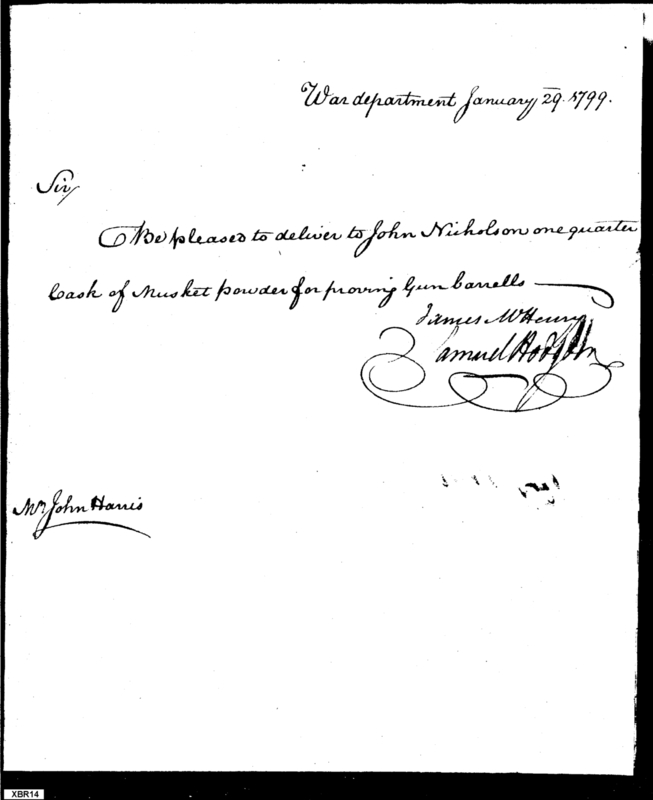 War department January 29. 1799.
Sir
Be pleased to deliver to John Nicholson one quarter
Cask of Musket powder for proving Gun barrells
James McHenry
Samuel Hodgdon
Mr John Harris
XBR14